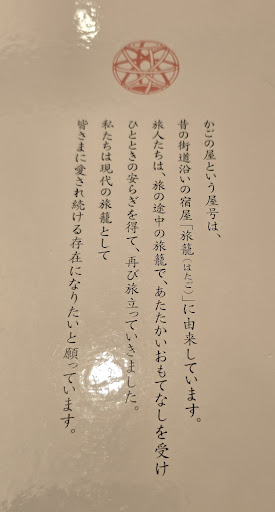 かごの屋という屋号は、
昔の街道沿いの宿屋「旅籠（はたご）」に由来しています。
旅人たちは、旅の途中の旅籠で、あたたかいおもてなしを受け
ひとときの安らぎを得て、再び旅立っていきました。
私たちは現代の旅籠として
皆さまに愛され続ける存在になりたいと願っています。